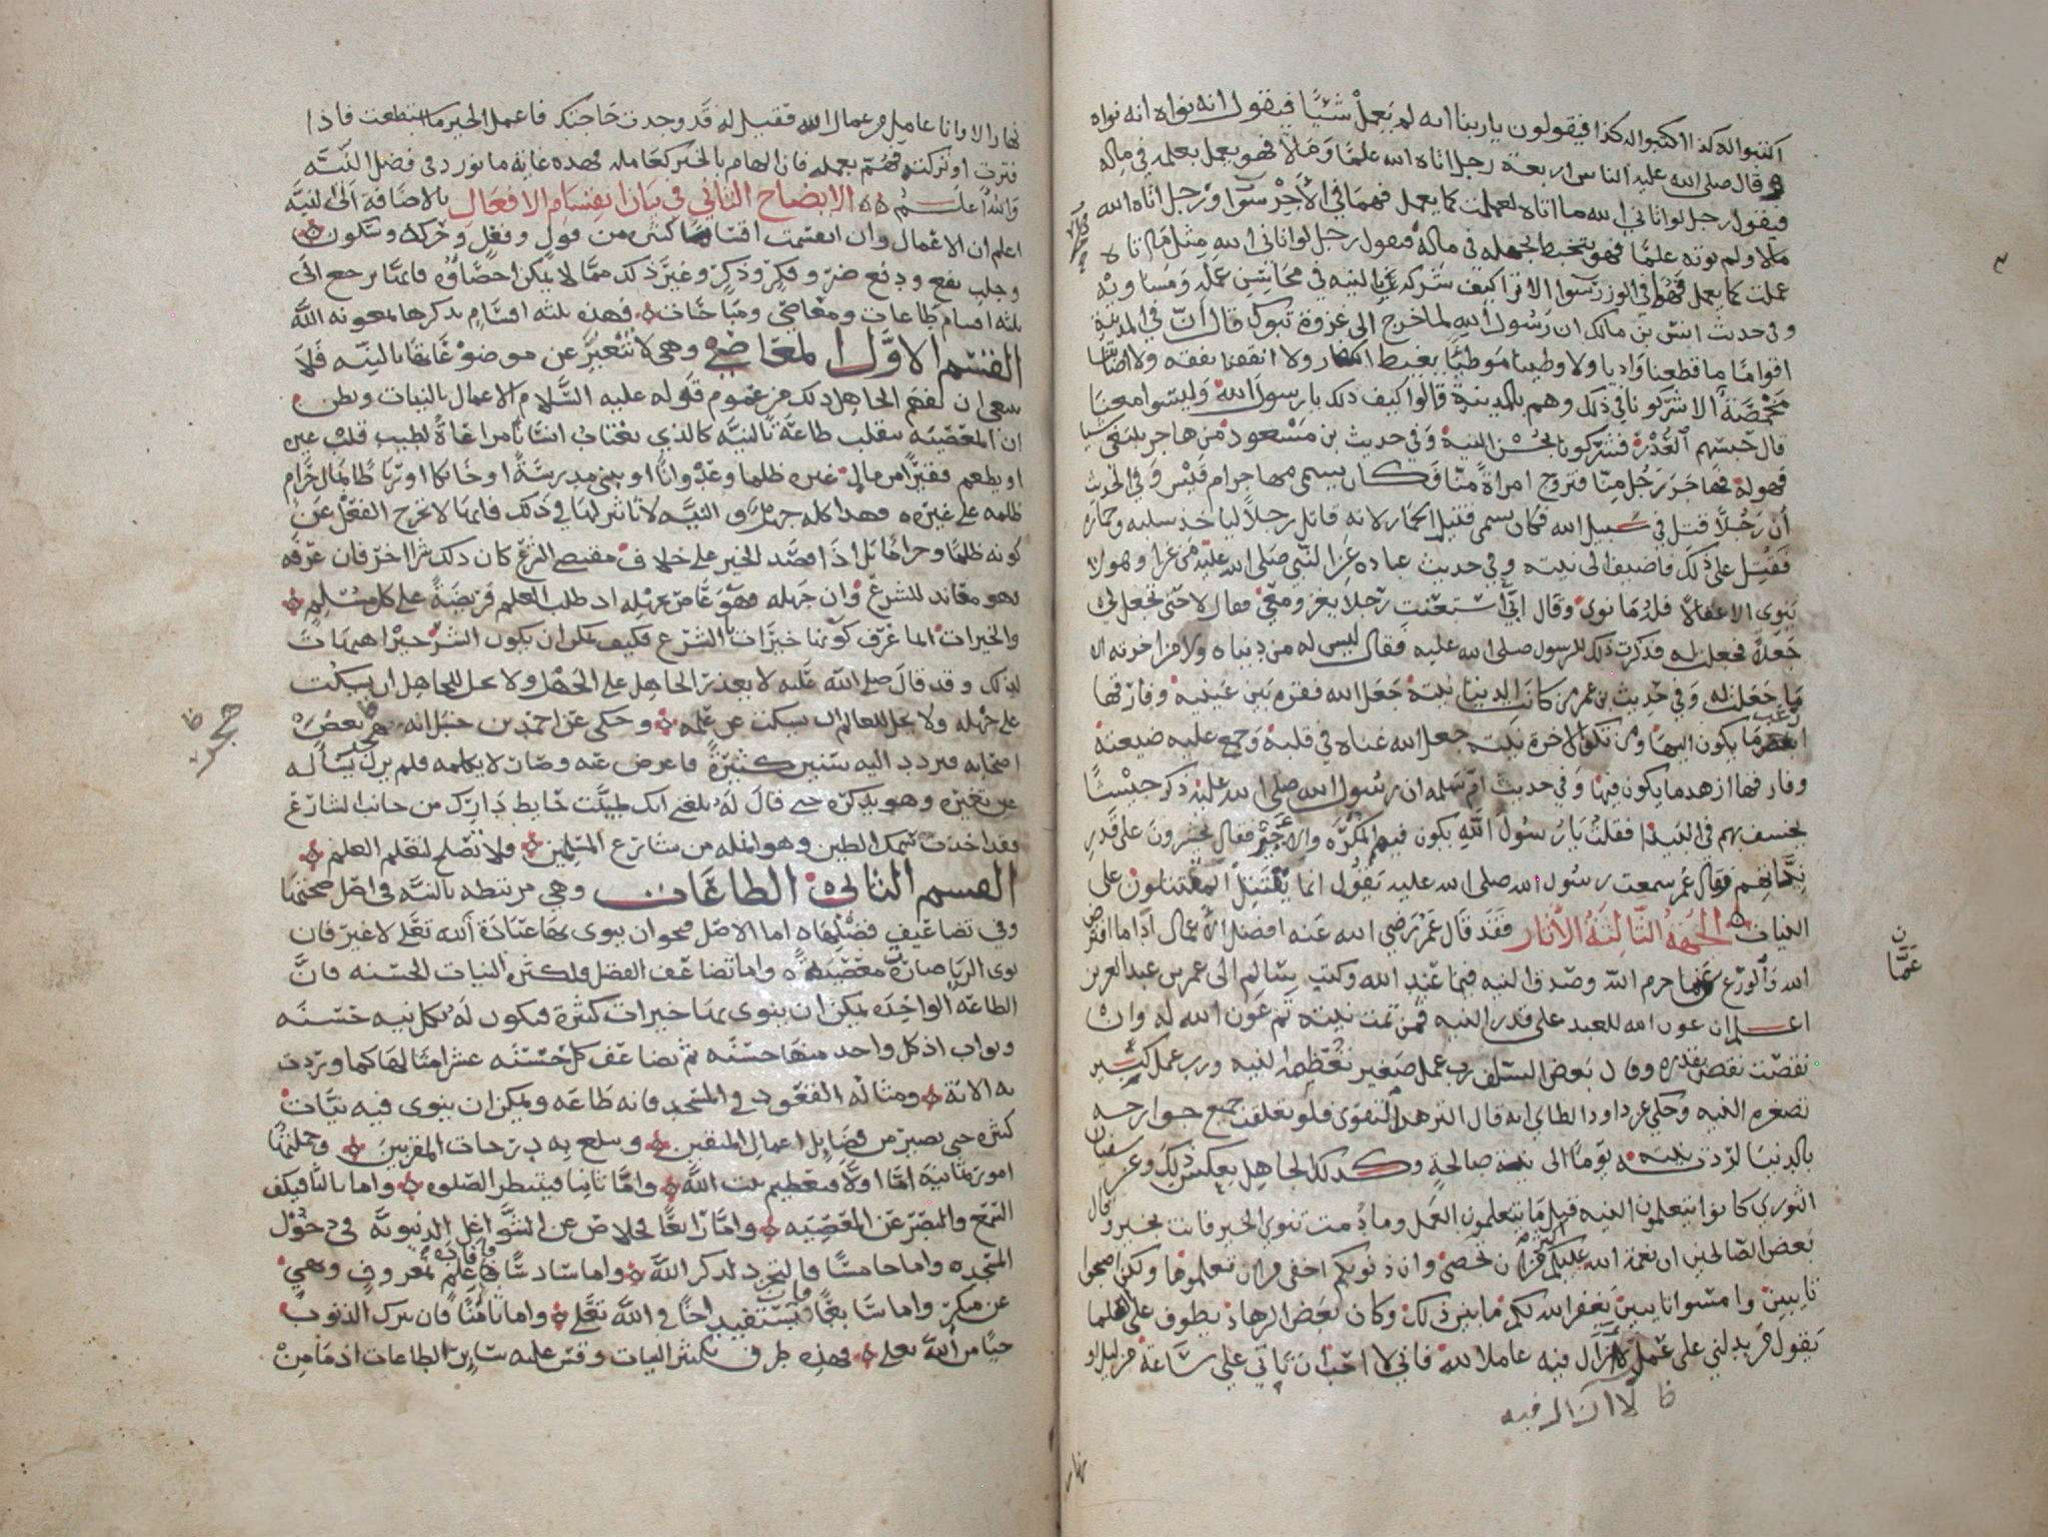 اكتبوا له كذا اكتبوا له كذا فيقولون يا ربنا انه لم يعمل شيئا فيقول انه نواه انه نواه
وقال صلى الله عليه الناس اربعة رجل اتاه الله علما ومالا فهو يعمل بعلمه في ماله
فيقول رجل لو اتاني الله ما اتاه لعملت كما يعمل فهما في الاجر سوا ورجل اتاه الله
مالا ولم يوته علما فهو يتخبط بجهله في ماله فيقول رجل لو اتاني الله مثل ما اتاه
عملت كما يعمل فهما في الوزر سوا الا ترا كيف شركه بالنيه في محاسن عمله ومساويه
وفي حديث انس بن مالك ان رسول الله لما خرج الى غزوة تبوك قال ان في المدينة
اقواما ما قطعنا واديا ولا وطينا موطيا يغيظ الكفار ولا انفقنا نفقه ولا اصابتنا
مخمصة الا شركونا في ذلك وهم بالمدينة قالوا كيف ذلك يا رسول الله وليسوا معنا
قال حبسهم العذر فشركونا بحسن النية وفي حديث بن مسعود من هاجر يبتغي شيا
فهو له فهاجر رجل منا فتزوج امراة منا فكان يسمى مهاجر ام قيس وفي الحديث
ان رجلا قتل في سبيل الله فكان يسمى قتيل الحمار لانه قاتل رجلا لياخذ سلبه وحماره
فقتل على ذلك فاضيف الى نيته وفي حديث عباده عن النبي صلى الله عليه من غزا وهو لا
ينوي الا عقالا فله ما نوى وقال ابي استعنت رجلا يغزو معي فقال لا حتى تجعل لي
جعلا فجعلت له فذكرت ذلك للرسول صلى الله عليه فقال ليس له من دنياه ولا من اخرته الا
ما جعلت له وفي حديث بن عمر من كانت الدنيا نيته جعل الله فقره بين عينيه وفارقها
ارغب ما يكون اليها ومن تكون الاخرة نيته جعل الله غناه في قلبه وجمع عليه ضيعته
وفارقها ازهد ما يكون فيها وفي حديث ام سلمه ان رسول الله صلى الله عليه ذكر جيشا
يخسف بهم في البيدا فقلت يا رسول الله يكون فيهم المكره والاجير فقال يحشرون على قدر
نياتهم وقال عمر سمعت رسول الله صلى الله عليه يقول انما يقتتل المقتتلون على
النيات الجهة الثالثة الاثار فقد قال عمر رضي الله عنه افضل الاعمال ادا ما افترض
الله والورع عما حرم الله وصدق النيه فيما عند الله وكتب سالم الى عمر بن عبد العزيز
اعلم ان عون الله للعبد على قدر النيه فمن تمت نيته تم عون الله له وان
نقصت نقص بقدره وقال بعض السلف رب عمل صغير تعظمه النيه ورب عمل كبير
تصغره النيه وحكي عن داود الطاي انه قال البر همه التقوى فلو تعلقت جميع جوارحه
بالدنيا لردته نيته يوما الى نية صالحة وكذلك الجاهل بعكس ذلك وعن سفيان
الثوري كانوا يتعلمون النيه قبل ما يتعلمون العمل وما دمت تنوي الخير فانت بخير وقال
بعض الصالحين ان نعمة الله عليكم اكثر من ان تحصى وان ذنوبكم اخفى من ان تعلموها ولكن اصبحوا
تايبين وامسوا تايبين يغفر الله لكم ما بين ذلك وكان بعض الزهاد يطوف على العلما
يقول من يدلني على عمل لا ازال فيه عاملا لله فاني لا احب ان ياتي علي ساعة من ليل او
ظ لا ازال فيه
نهار
عما
نهار الا وانا عامل من عمال الله فقيل له قد وجدت حاجتك فاعمل الخير ما استطعت فاذا
فترت او تركته فهم بعمله فان الهام بالخير كعامله فهذه غاية ما نورد في فضل النية
والله اعلم الايضاح الثاني في بيان انقسام الافعال بالاضافة الى النية
اعلم ان الاعمال وان انقسمت اقساما كثيره من قول وفعل وحركه وسكون
وجلب نفع ودفع ضر وفكر وذكر وغير ذلك مما لا يمكن احصاوه فانما يرجع الى
ثلثه اقسام طاعات ومعاصي ومباحات فهذه ثلثه اقسام نذكرها بمعونه الله
القسم الاول المعاصي وهي لا تتغير عن موضوعاتها بالنيه فلا
ينبغي ان يفهم الجاهل ذلك من عموم قوله عليه السلام الاعمال بالنيات ويظن
ان المعصيه تنقلب طاعة بالنيه كالذي يغتاب انسانا مراعاة لطيب قلب غيره
او يطعم فقيرا من مال غيره ظلما وعدوانا او يبني مدرسة او خانكا او رباطا بمال حرام
ظلمه على غيره فهذا كله جهل والنيه لا تاثير لها في ذلك فانها لا تخرج الفعل عن
كونه ظلما وحراما بل اذا قصد الخير على خلاف مقتضى الشرع كان ذلك شرا اخر فان عرفه
فهو معاند للشرع وان جهله فهو عاص بجهله اذ طلب العلم فريضة على كل مسلم
والخيرات انما عرف كونها خيرات بالشرع فكيف يمكن ان يكون الشر خيرا هيهات
لذلك وقد قال صلى الله عليه لا يعذر الجاهل على الجهل ولا يحل للجاهل ان يسكت
على جهله ولا يحل للعالم ان يسكت عن علمه وحكي عن احمد بن حنبل انه هجر بعض
اصحابه فتردد اليه سنين كثيرة فاعرض عنه وصار لا يكلمه فلم يزل يساله
عن تغيره وهو ينكره حتى قال له بلغني انك طينت حايط دارك من جانب الشارع
فقد اخذت سمك الطين وهو انمله من شارع المسلمين فلا تصلح لتعلم العلم
القسم الثاني الطاعات وهي مرتبطه بالنيه في اصل صحتها
وفي تضاعيف فضلها اما الاصل فهو ان ينوي بها عبادة الله تعلى لا غير فان
نوى الريا صارت معصية واما تضاعف الفضل فلكثرة النيات الحسنه فان
الطاعه الواحده يمكن ان ينوى بها خيرات كثرة فيكون له بكل نيه حسنه
وثواب اذ كل واحد منها حسنه ثم تضاعف كل حسنه عشر امثالها كما وردت
به الاية ومثاله القعود في المسجد فانه طاعه ويمكن ان ينوى فيه نيات
كثيره حتى يصير من فضايل اعمال المتقين ويبلغ به درجات المقربين وجملتها
امور ثمانية اما اولا فتعظيم بيت الله واما ثانيا فينتظر الصلوه واما ثالثا فيكف
السمع والبصر عن المعصيه واما رابعا فخلاص عن الشواغل الدنيويه في دخول
المسجده واما خامسا فالتجرد لذكر الله واما سادسا فافادة علم بمعروف ونهي
عن منكر واما سابعا فان يستفيد اخا في الله تعلى واما ثامنا فان يترك الذنوب
حيا من الله تعلى فهذه طرق تكثير النيات وقس عليه ساير الطاعات اذ ما من